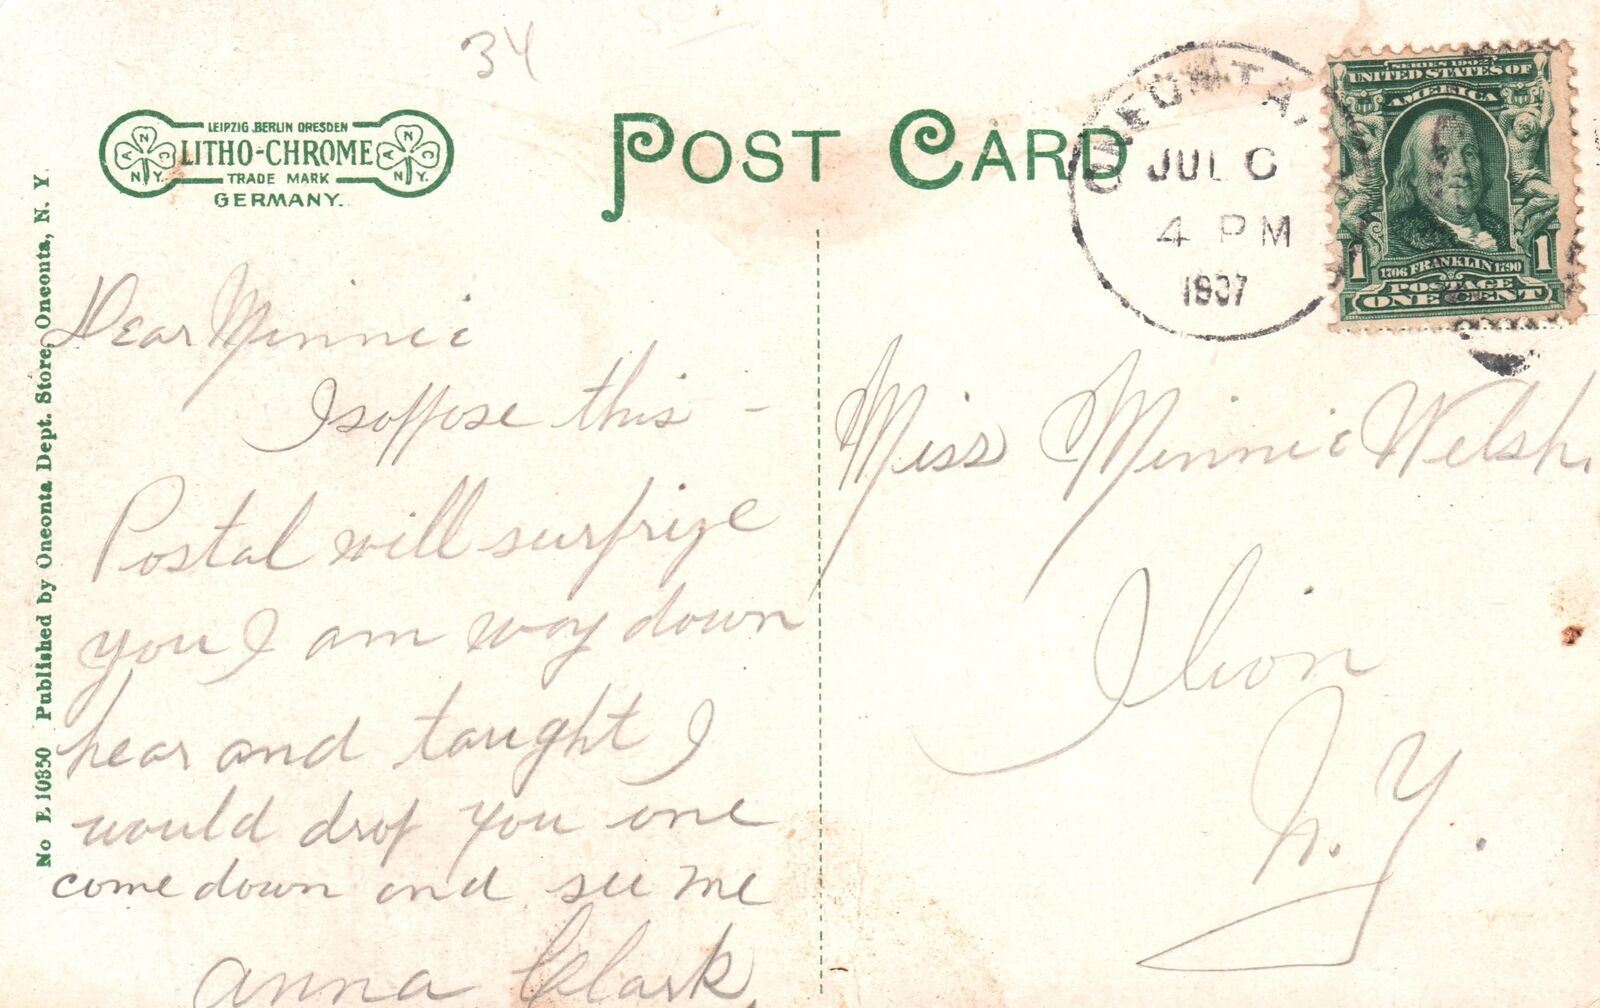 34
LEIPZIG BERLIN DRESDEN
LITHO-CHROME
TRADE MARK
GERMANY.
A N N.Y.
A N N C N.Y.
POST CARD
JUL
4 PM
1907
SERIES 1902
UNITED STATES OF
AMERICA
1 1
1706 FRANKLIN 1790
POSTAGE
ONE CENT
No E 10850 Published by Oneonta Dept. Store, Oneonta, N. Y.
Dear Minnie
I soppose this -
Postal will surprize
you I am way down
hear and taught I
would drop you one
come down and see me
Anna Clark,
Miss Minnie Welsh,
Ilion
N.Y.